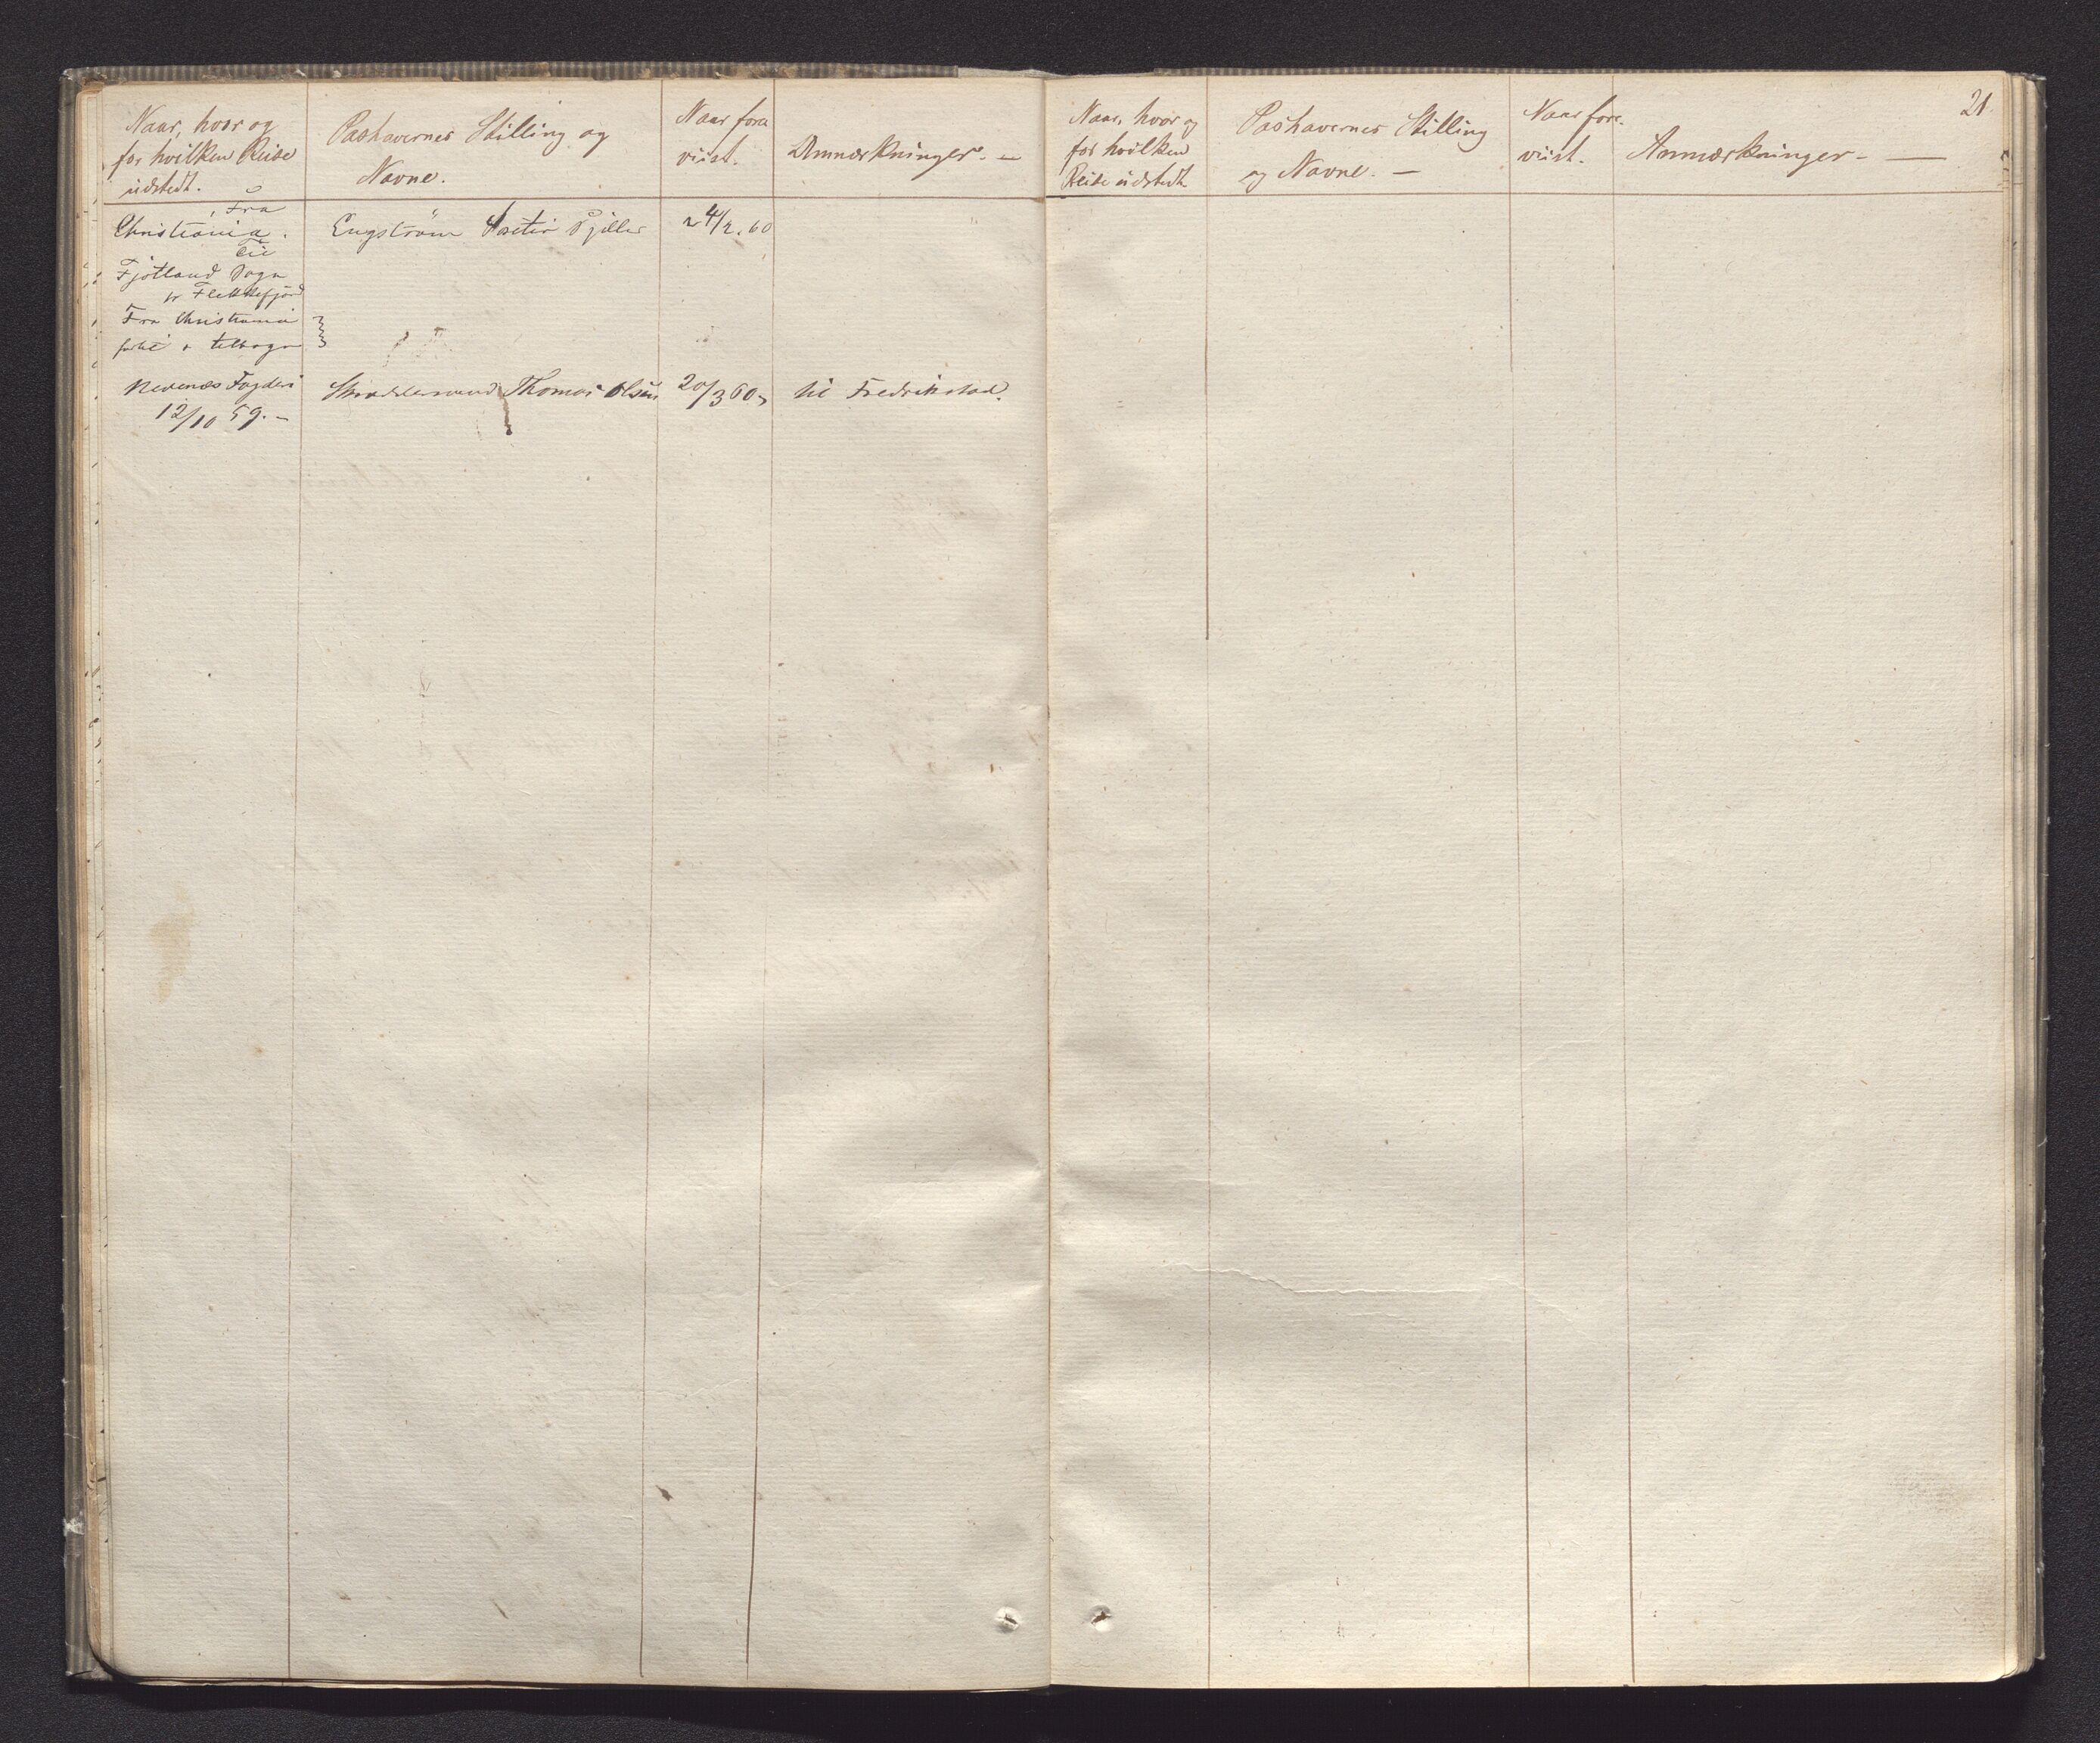 Naar, hvor og
for hvilken Reise
udstedt.
Pashavernes Stilling og
Navne.
Naar fore
viist.
Anmærkninger. —
Fra
Christiania.
Til
Fjotland Sogn
pr Flekkefjord
Fra Christiania
 tilbage
Engström
24/2. 60
Nedenæs Fogderi
12/10 59. —
Thomas Olsen
20/3 60.
til Fredrikstad.
Naar, hvor og
for hvilken
Reise udstedt.
Pashavernes Stilling
og Navne. —
Naar fore.
viist.
Anmærkninger. —
21.